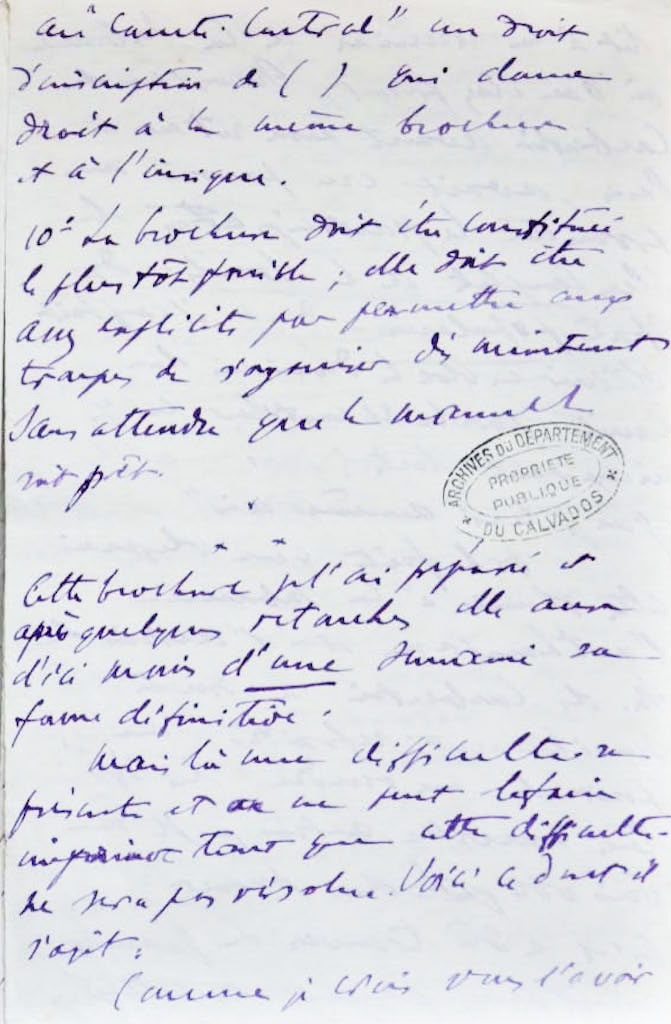 au "Comité Central" un droit
d'inscription de ( ) qui donne
droit à la même brochure
et à l'insigne.
10° La brochure doit être constituée
le plus tôt possible ; elle doit être
assez explicite pour permettre aux
troupes de s'organiser dès maintenant
sans attendre que le manuel
soit prêt.
ARCHIVES DU DÉPARTEMENT
PROPRIÉTÉ
PUBLIQUE
DU CALVADOS
Cette brochure je l'ai préparée et
après quelques retouches elle aura
d'ici moins d'une semaine sa
forme définitive.
Mais là une difficulté se
présente et on ne peut la faire
imprimer tant que cette difficulté
ne sera pas résolue. Voici ce dont il
s'agit :
Comme je crois vous l'avoir